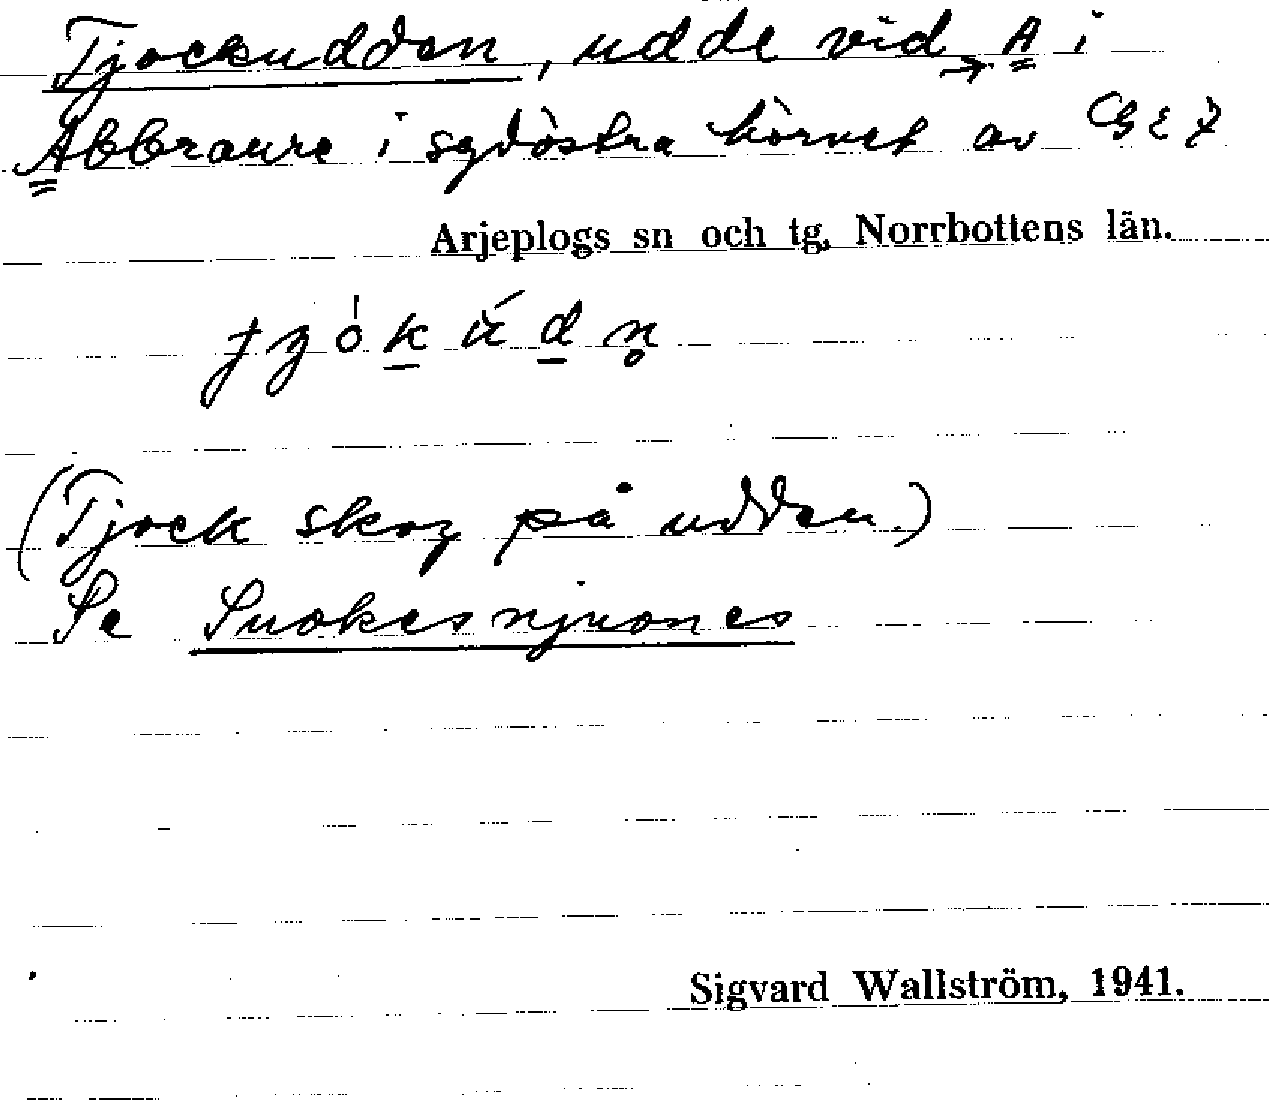 Tjockudden, udde vid → A i
Abbraure i sydöstra hörnet av G 2 7
Arjeplogs sn och tg, Norrbottens län.
(Tjock skog på udden.)
Se Suokesnjuones
Sigvard Wallström, 1941.